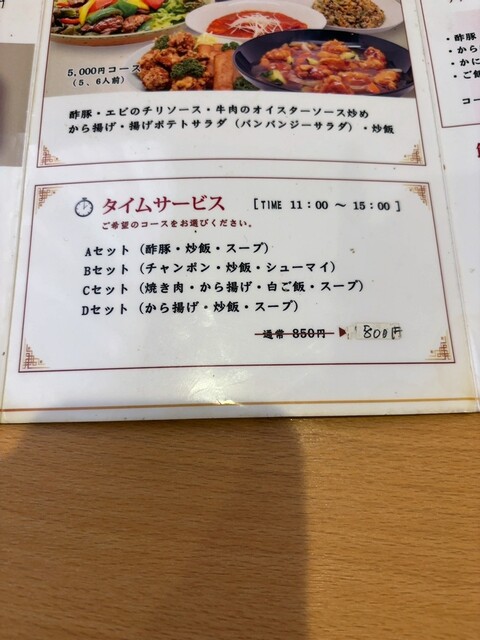 5,000円コース
（5、6人前）
酢豚・エビのチリソース・牛肉のオイスターソース炒め
から揚げ・揚げポテトサラダ（バンバンジーサラダ）・炒飯
タイムサービス [TIME 11：00 ～ 15：00]
ご希望のコースをお選びください。
Aセット（酢豚・炒飯・スープ）
Bセット（チャンポン・炒飯・シューマイ）
Cセット（焼き肉・から揚げ・白ご飯・スープ）
Dセット（から揚げ・炒飯・スープ）
通常 850円 ▶ 800円
・酢豚
・から
・かに
・ご飯
コー